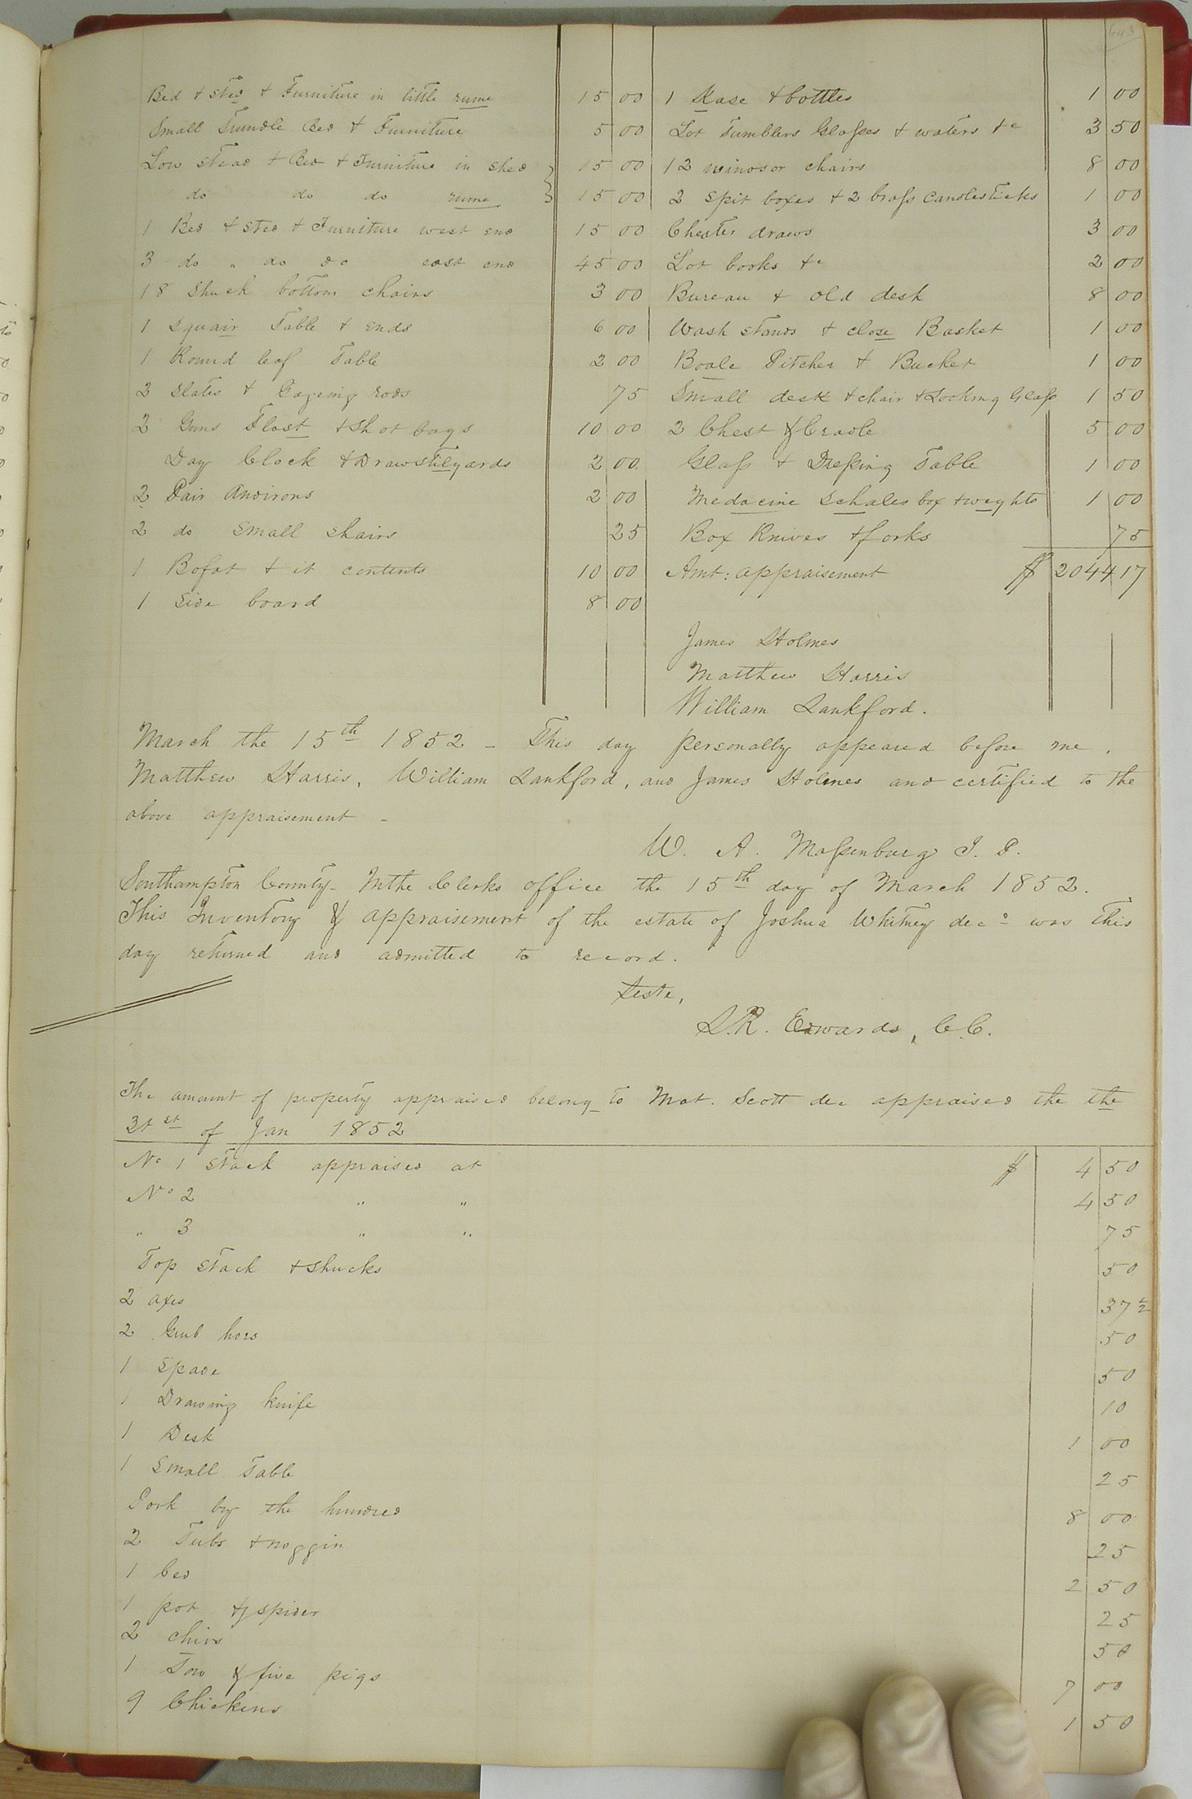 643
Bed + sted + Furniture in little rume 15 00
Small Trundle Bed + Furniture 5 00
Low stead + Bed + Furniture in shed 15 00
do do do rume 15 00
1 Bed + sted + Furniture west end 15 00
3 do " do do east end 45 00
18 Shuck bottom chairs 3 00
1 Squair Table + ends 6 00
1 Round leaf Table 2 00
2 Slates + Gageing rods 75
2 Guns Flast + Shot bags 10 00
Day Clock + Drawstilyards 2 00
2 Pair Andirons 2 00
2 do small chairs 25
1 Bofat + it contents 10 00
1 Side board 8 00
1 Kase + bottles 1 00
Lot Tumblers Glasses + waters +c 3 50
12 winosor chairs 8 00
2 Spit boxes + 2 brass candlesticks 1 00
Chester draws 3 00
Lot books +c 2 00
Bureau + old desk 8 00
Wash stands + close Basket 1 00
Boale Pitcher + Bucket 1 00
Small desk + chair + Looking Glass 1 50
2 Chest & Cradle 5 00
Glass + Dressing Table 1 00
Medacine Schales box + weights 1 00
Box Knives + forks 75
Amt: appraisement $ 2044 17
James Holmes
Matthew Harris
William Lankford.
March the 15th 1852 - This day personally appeared before me,
Matthew Harris, William Lankford, and James Holmes and certified to the
above appraisement -
W. A. Massenburg J. P.
Southampton County - In the Clerks office the 15th day of March 1852.
This Inventory & appraisement of the estate of Joshua Whitney decd was this
day returned and admitted to record.
Teste,
L.R. Edwards, C.C.
The amount of property appraised belong to Mat. Scott dec appraised the the
31st of Jan 1852
No 1 Stack appraised at $ 4 50
No 2 " " 4 50
" 3 " " 75
Top stack + shucks 50
2 axes 37 1/2
2 Grub hoes 50
1 Spade 50
1 Drawing knife 10
1 Desk 1 00
1 Small Table 25
Pork by the hundred 8 00
2 Tubs + noggin 25
1 bed 2 50
1 pot & spider 25
2 chirs 50
1 Sow & five pigs 7 00
9 Chickens 1 50